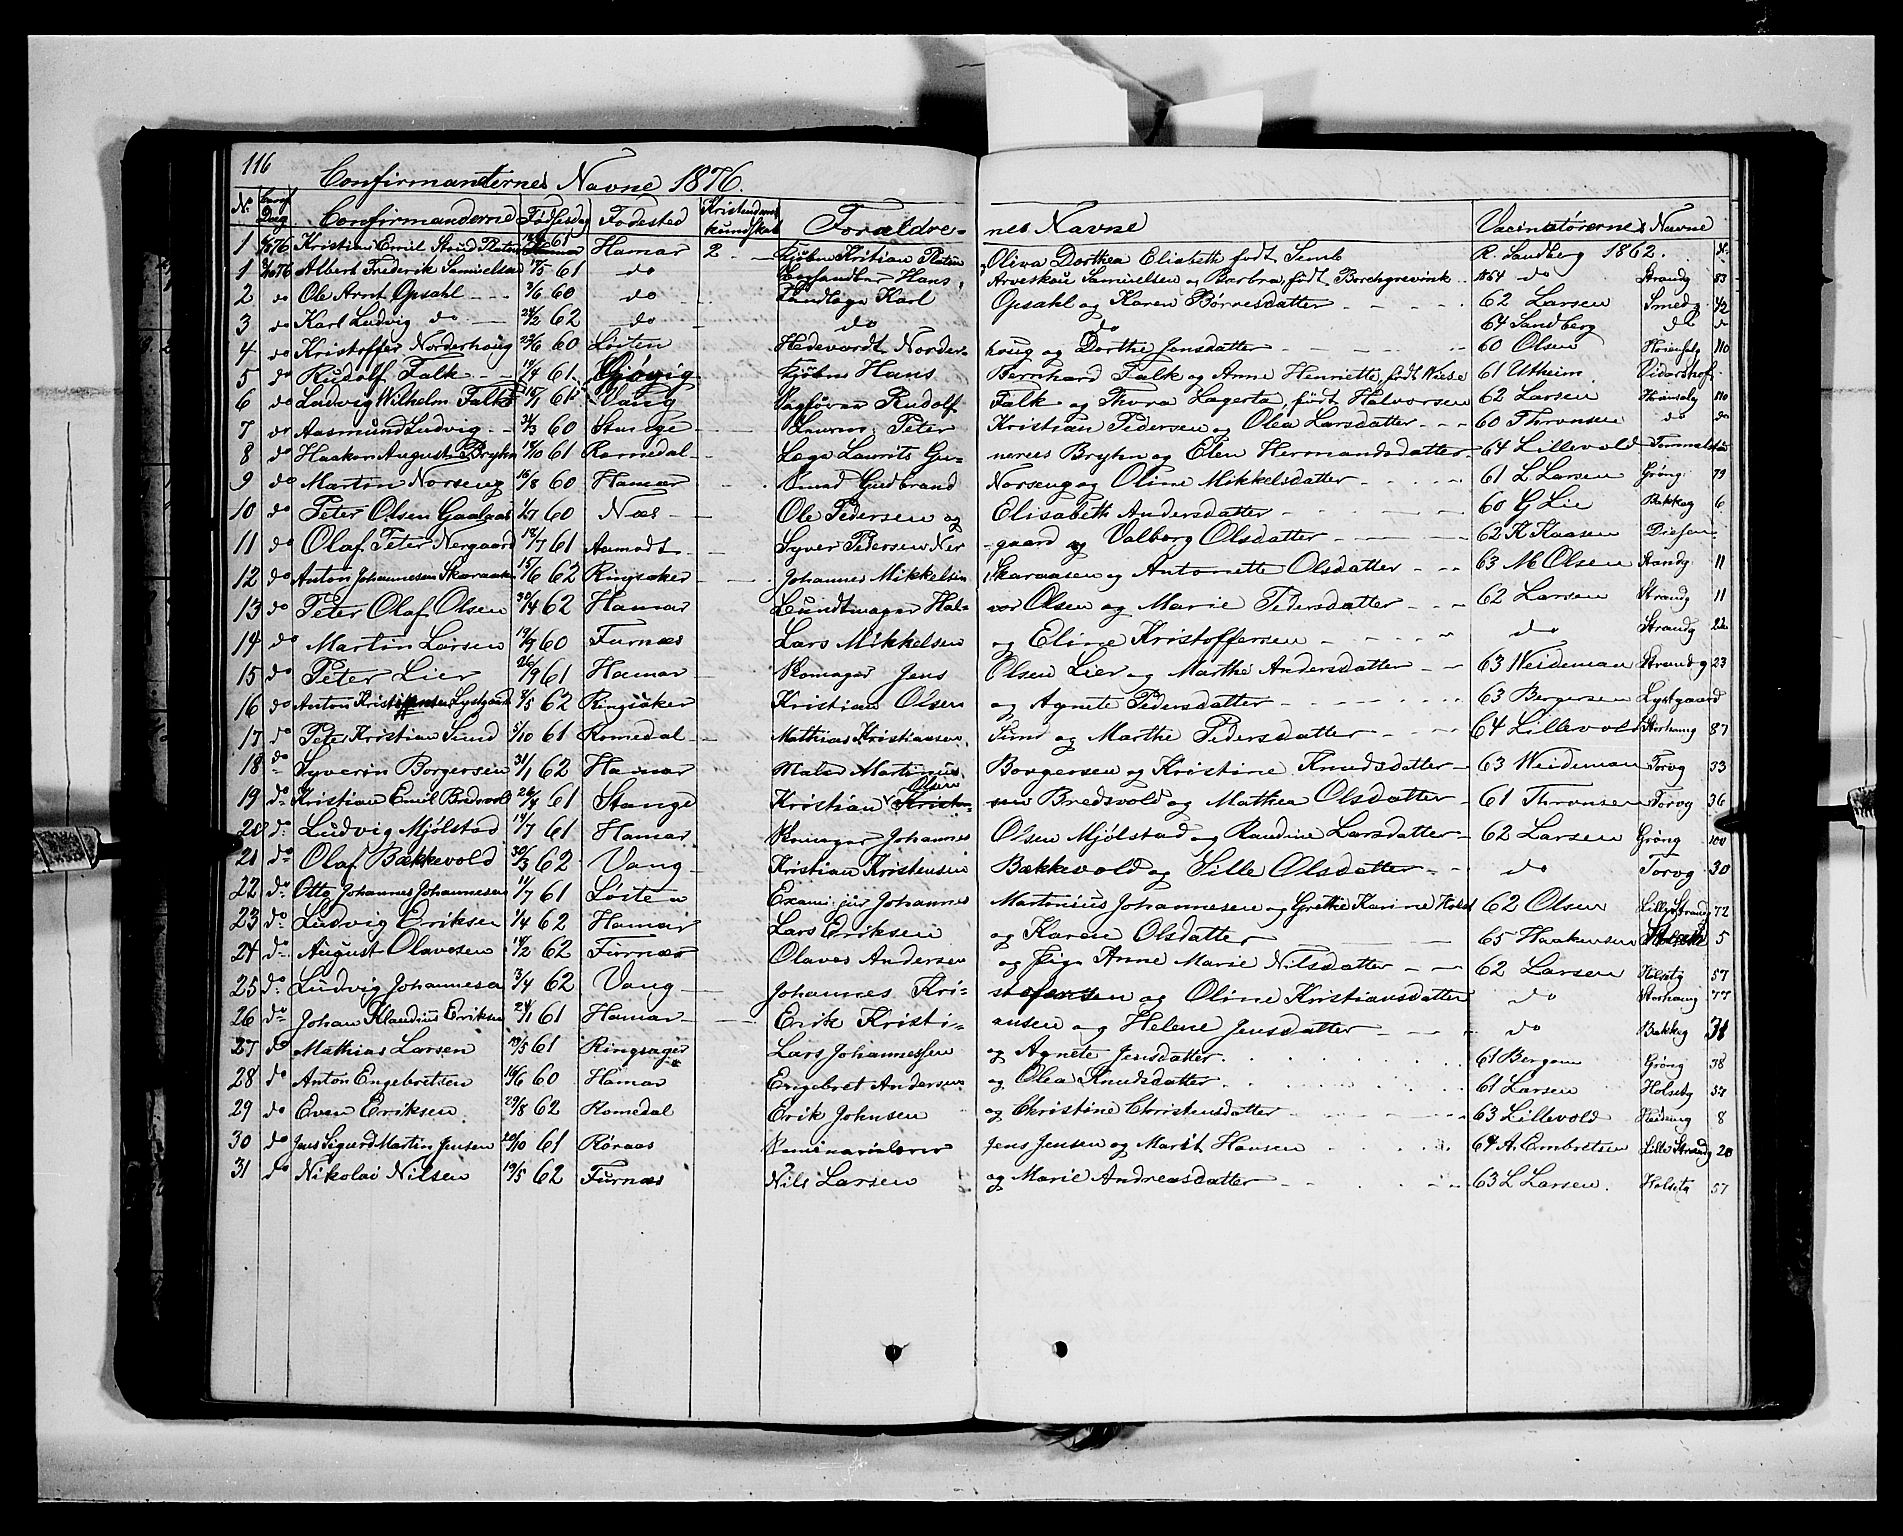 116
Confirmanternes Navne 1876.
No Conf Dag Confirmanderne Födselsdag Fodested Kristendoms kundskab Foraldre- nes Navne Vacinatörernes Navne
1 Kristian Emil Hamar 2 Kjöbm Kristian Platou Oliva Dorthea Elisabeth födt Semb R. Sandberg 1862. N.
1 Albert Frederik Samuelsen 17/5 61 do Hans Arveskou Samuelsen og Barbra, födt Borchgrevink 1864 do Strandg 83
2 do Ole Arnt Opsahl 3/6 60 do Karl Opsahl og Karen Börresdatter 62 Larsen Smedg 42
3 do Karl Ludvig do 24/2 62 do do do 64 Sandberg do do
4 do Kristoffer Norderhoug 23/6 60 Löiten Hedevardt Norder- houg og Dorthe Jensdatter 60 Olsen 110
5 do Rudolf Falk 17/4 61 Gjövig Kjöbm Hans Bernhard Falk og Anne Henriette, födt Wiese 61 Utheim Vidarshof
6 do Ludvig Wilhelm Falk 15/7 61 Vang Sagförer Rudolf Falk og Thora Lagerta, födt Halvorsen 62 Larsen 110
7 do Aasmund Ludvig 31/3 60 Stange Peter Kristian Pedersen og Olea Larsdatter 60 Thronsen do do
8 do Haakon August Bryhn 18/10 61 Romedal Lægs Laurits Gu- nereus Bryhn og Elen Hermandsdatter 64 Lillevold
9 do Martin Norseng 16/8 60 Hamar Smed Gudbrand Norseng og Oline Mikkelsdatter 61 L Larsen Gröng 79
10 do Peter Olsen Gaalaas 4/7 60 Næs Ole Pedersen og Elisabeth Andersdatter 60 G Lie Bakkeg 6
11 do Olaf Peter Nergaard 12/7 61 Aamodt Syver Pedersen Ner -gaard og Valborg Olsdatter 62 K Kaasen
12 do Anton Johannesen Skaraasen 15/6 62 Ringsaker Johannes Mikkelsen Skaraasen og Antonette Olsdatter 63 M Olsen Strandg 11
13 do Peter Olaf Olsen 30/4 62 Hamar Hal- vor Olsen og Marie Pedersdatter 62 Larsen Strandg 11
14 do Martin Larsen 19/9 60 Furnæs Lars Mikkelsen og Eline Kristoffersen do Strandg 22
15 do Peter Lier 26/9 61 Hamar Skomager Jens Olsen Lier og Marthe Andersdatter 63 Weideman Strandg 23
16 do Anton Kristiansen Lystgaard 8/5 62 Ringsaker Kristian Olsen og Agnete Pedersdatter 63 Bergersen Lystgaard
17 do Peter Kristian Sund 5/10 61 Romedal Mathias Kristiansen Sund og Marthe Pedersdatter 64 Lillevold Storhamg 87
18 do Syverin Borgersen 31/1 62 Hamar Maler Martinus Borgersen og Kristine Knudsdatter 63 Weideman Torvg 33
19 do Kristian Emil Bredvold 26/4 61 Stange Kristian Olsen Bredsvold og Mathea Olsdatter 61 Thronsen Torvg 36
20 do Ludvig Mjölstad 14/7 61 Hamar Skomager Johannes Olsen Mjölstad og Randine Larsdatter 62 Larsen Gröng 100
21 do Olaf Bakkevold 30/3 62 Vang Kristian Kristensen Bækkevold og Sille Olsdatter do Torvg 30
22 do Otto Johannes Johannesen 11/7 61 Löiten Johannes Martinius Johannesen og Grethe Karine Holst 62 Olsen Lille Strandg 72
23 do Ludvig Eriksen 1/4 62 Hamar Lars Eriksen og Karen Olsdatter 65 Haakensen 5
24 do August Olavesen 18/2 62 Furnæs Olaves Andersen og Pige Anne Marie Nilsdatter 62 Larsen Holsetg 57
25 do Ludvig Johannesen 3/4 62 Vang Johannes Kri- stofensen og Oline Kristiansdatter do Storhamg 77
26 do Johan Klaudius Eriksen 24/1 61 Hamar Erik Kristi- ansen og Helene Jensdatter do Bakkeg 31
27 do Mathias Larsen 19/5 61 Ringsager Lars Johannessen og Agnete Jensdatter 61 Bergem Gröng 38
28 do Anton Engebretsen 16/6 60 Hamar Engebret Andersen og Olea Knudsdatter 61 Larsen Holsetg 57
29 do Even Eriksen 29/8 62 Romedal Erik Johnsen og Christine Christensdatter 63 Lillevold 8
30 do Jens Sigurd Martin Jensen 20/10 61 Röraas Seminarielærer Jens Jensen og Marit Hansen 64 A. Embretsen Lille Strandg 20
31 do Nikolai Nilsen 19/5 62 Furnæs Nils Larsen og Marie Andreasdatter 63 L Larsen Holsetg 57